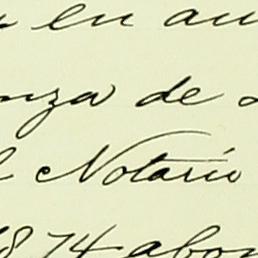 en au
nza de
l Notario
1874 abon